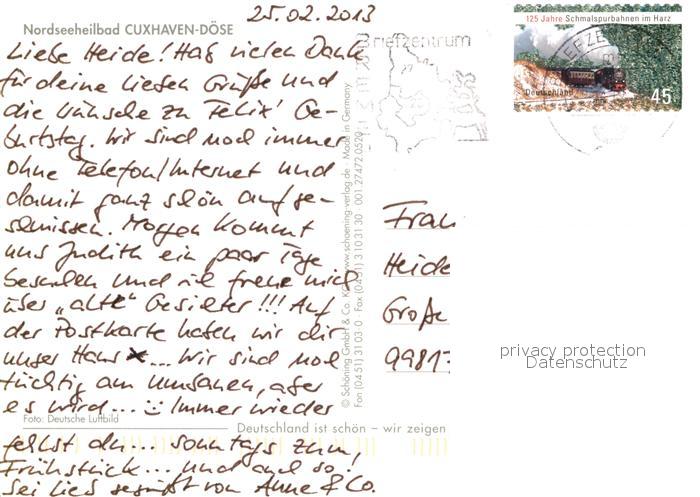 25.02.2013
Nordseeheilbad CUXHAVEN-DÖSE
Liebe Heide! Hab vielen Dank
für deine lieben Grüße und
die Wünsche zu Felix' Ge-
burtstag. Wir sind noch immer
ohne Telefon/Internet und
damit ganz schön aufge-
schmissen. Morgen kommt
uns Judith ein paar Tage
besuchen und ich freue mich
über "alte" Gesichter!!! Auf
der Postkarte haben wir dir
unser Haus x... Wir sind noch
tüchtig am Umbauen, aber
es wird... Immer wieder
Foto: Deutsche Luftbild
Deutschland ist schön – wir zeigen
fehlst du... sonntags zum
Frühstück... und auch so!
Sei lieb gegrüßt von Anne & Co.
© Schöning GmbH & Co. KG · www.schoening-verlag.de · Made in Germany
Fon (0451) 31 03 0 · Fax (0451) 3 10 31 30 · 001 27472 0520
Briefzentrum
125 Jahre Schmalspurbahnen im Harz
Deutschland
45
Frau
Heide
Große
9981
privacy protection
Datenschutz